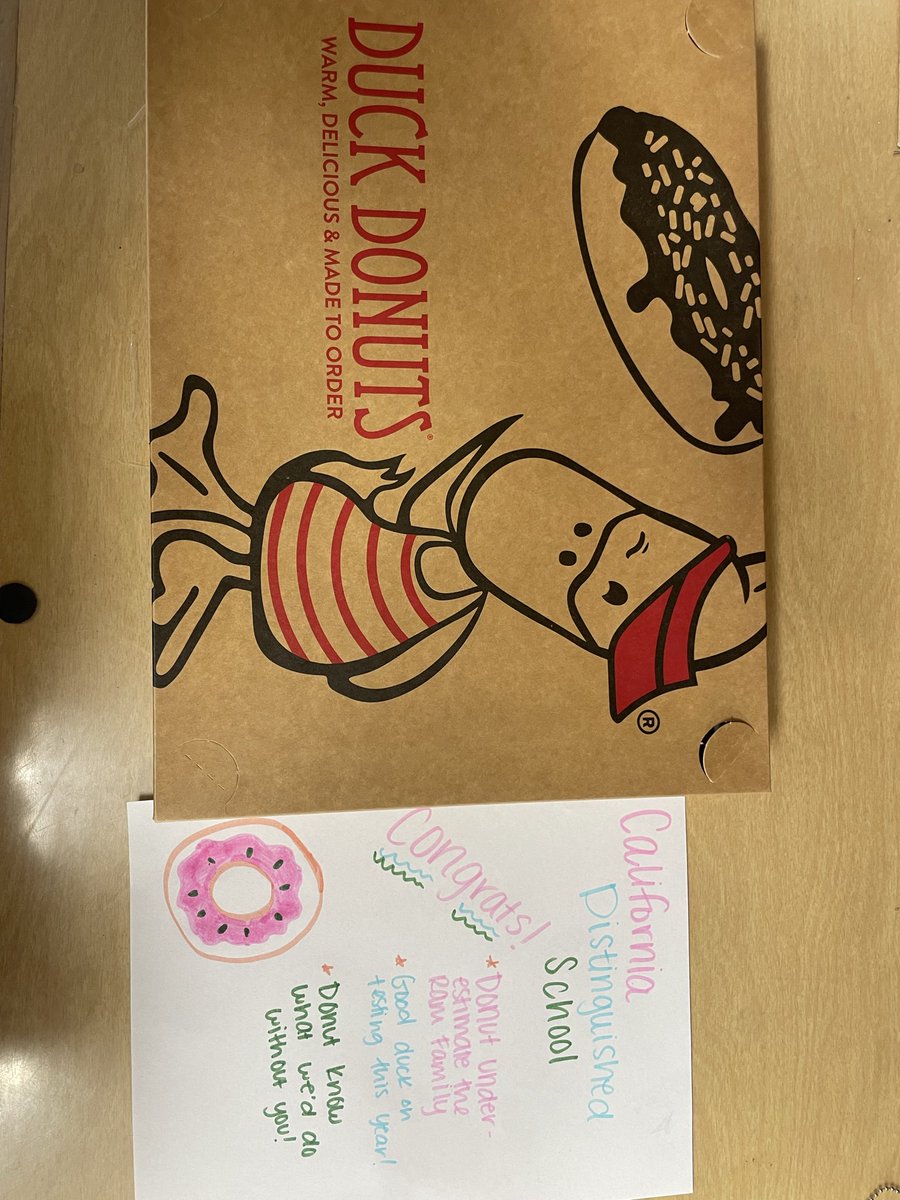 DUCK DONUTS®
WARM, DELICIOUS & MADE TO ORDER
®
California
Distinguished
School
Congrats!
* Donut under-
estimate the
Ram Family
* Good duck on
testing this year!
* Donut know
what we'd do
without you!